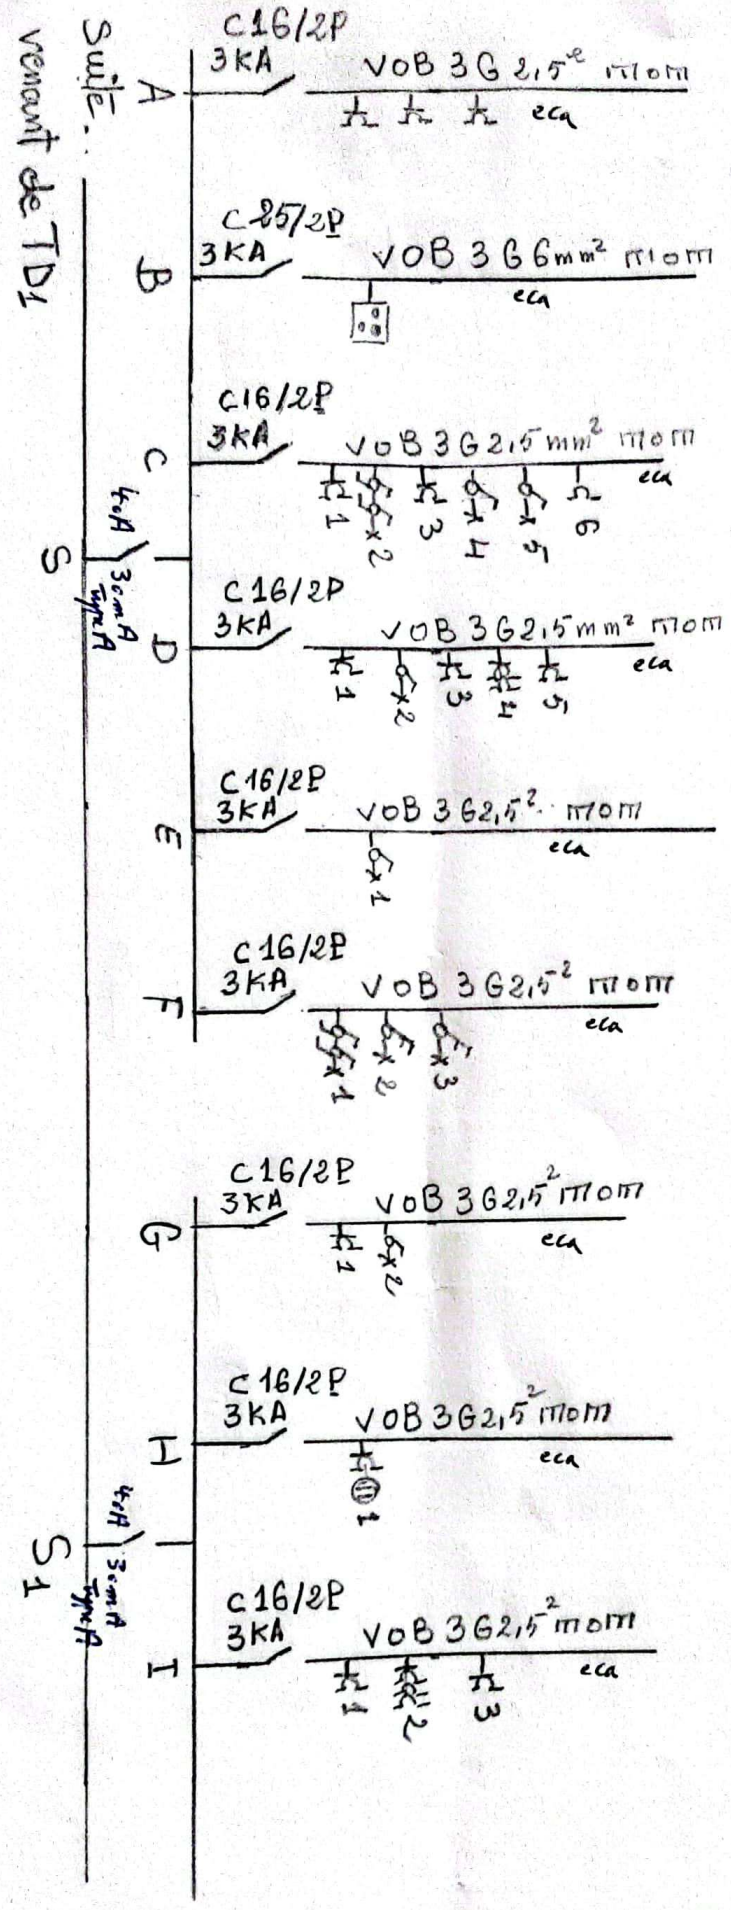 Suite..
venant de TD1
A
C16/2P
3KA
VOB 3G 2,5² mom
eca
B
C25/2P
3KA
VOB 3G6mm² mom
eca
C
C16/2P
3KA
VOB 3G2,5mm² mom
eca
1 2 3 4 5 6
S
40A
30mA
Type A
D
C16/2P
3KA
VOB 3G2,5mm² mom
eca
1 2 3 4 5
E
C16/2P
3KA
VOB 3G2,5² mom
eca
1
F
C16/2P
3KA
VOB 3G2,5² mom
eca
1 2 3
G
C16/2P
3KA
VOB 3G2,5² mom
eca
1 2
H
C16/2P
3KA
VOB 3G2,5² mom
eca
1
S1
40A
30mA
Type A
I
C16/2P
3KA
VOB 3G2,5² mom
eca
1 2 3